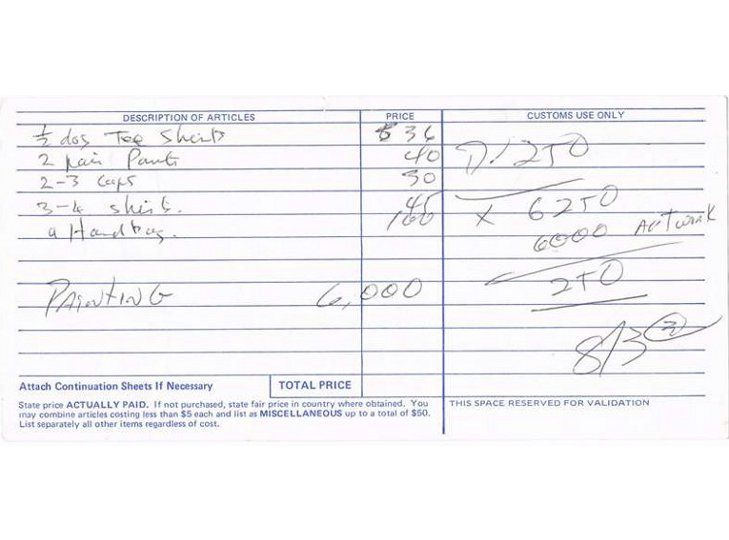 DESCRIPTION OF ARTICLES PRICE CUSTOMS USE ONLY
½ dos Tee Shirts $ 36
2 pair Pants 40
D/250
2-3 Caps 30
3-4 shirts. 45
X 6250
a Handbag. 100
6000 Artwork
250
PAINTING 6,000
8/3
Attach Continuation Sheets If Necessary TOTAL PRICE
State price ACTUALLY PAID. If not purchased, state fair price in country where obtained. You
may combine articles costing less than $5 each and list as MISCELLANEOUS up to a total of $50.
List separately all other items regardless of cost.
THIS SPACE RESERVED FOR VALIDATION